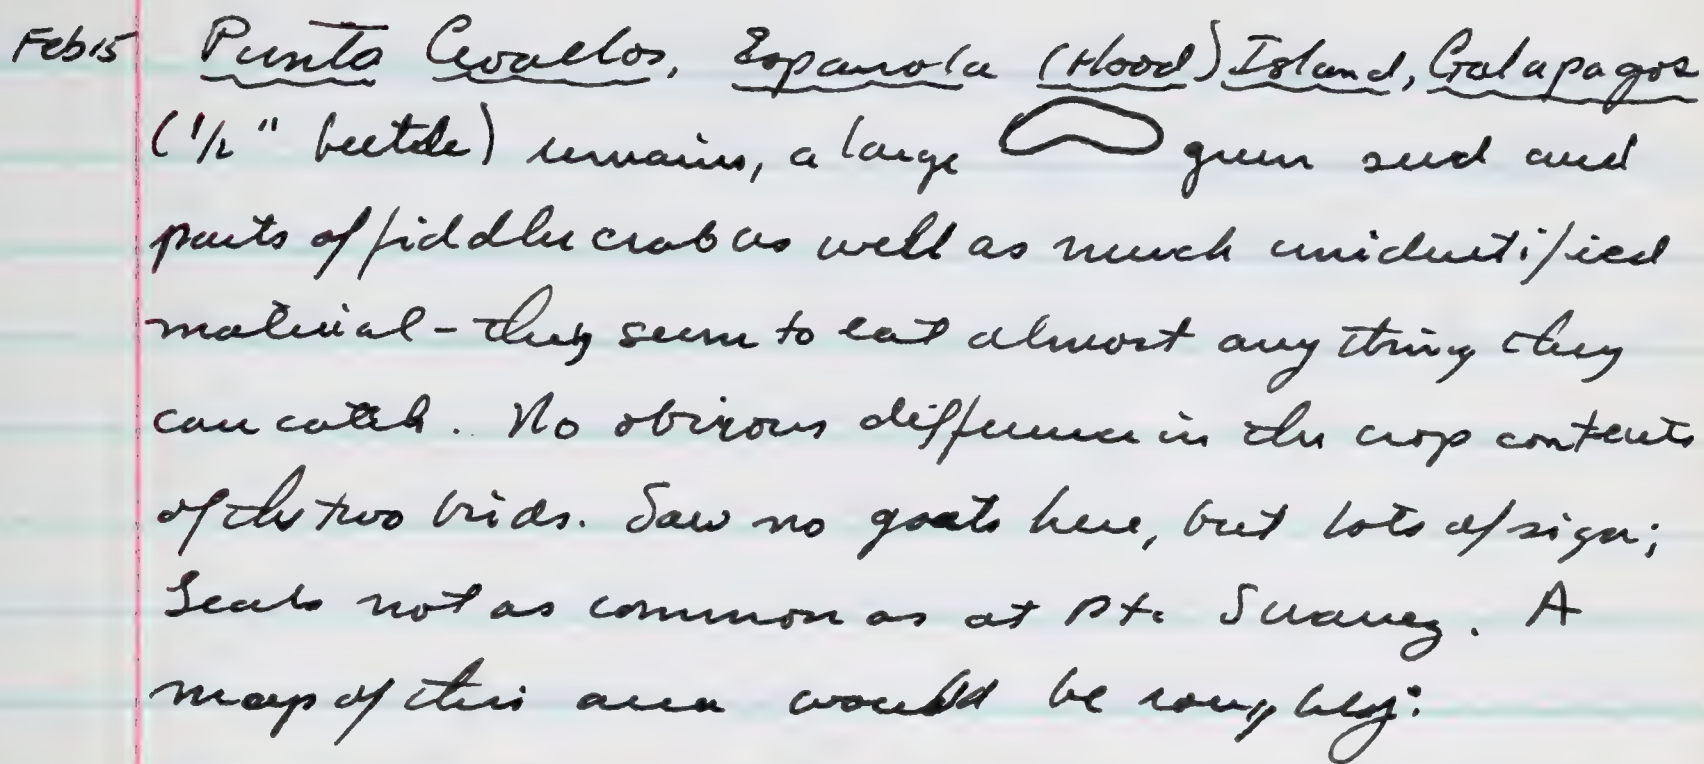 Feb 15 Punta Cevallos, Espanola (Hood) Island, Galapagos
(1/2" beetle) remains, a large green seed and
parts of fiddler crab as well as much unidentified
material - they seem to eat almost anything they
can catch. No obvious difference in the crop contents
of the two birds. Saw no goats here, but lots of sign;
Seals not as common as at Pt. Suarez. A
map of this area would be roughly: